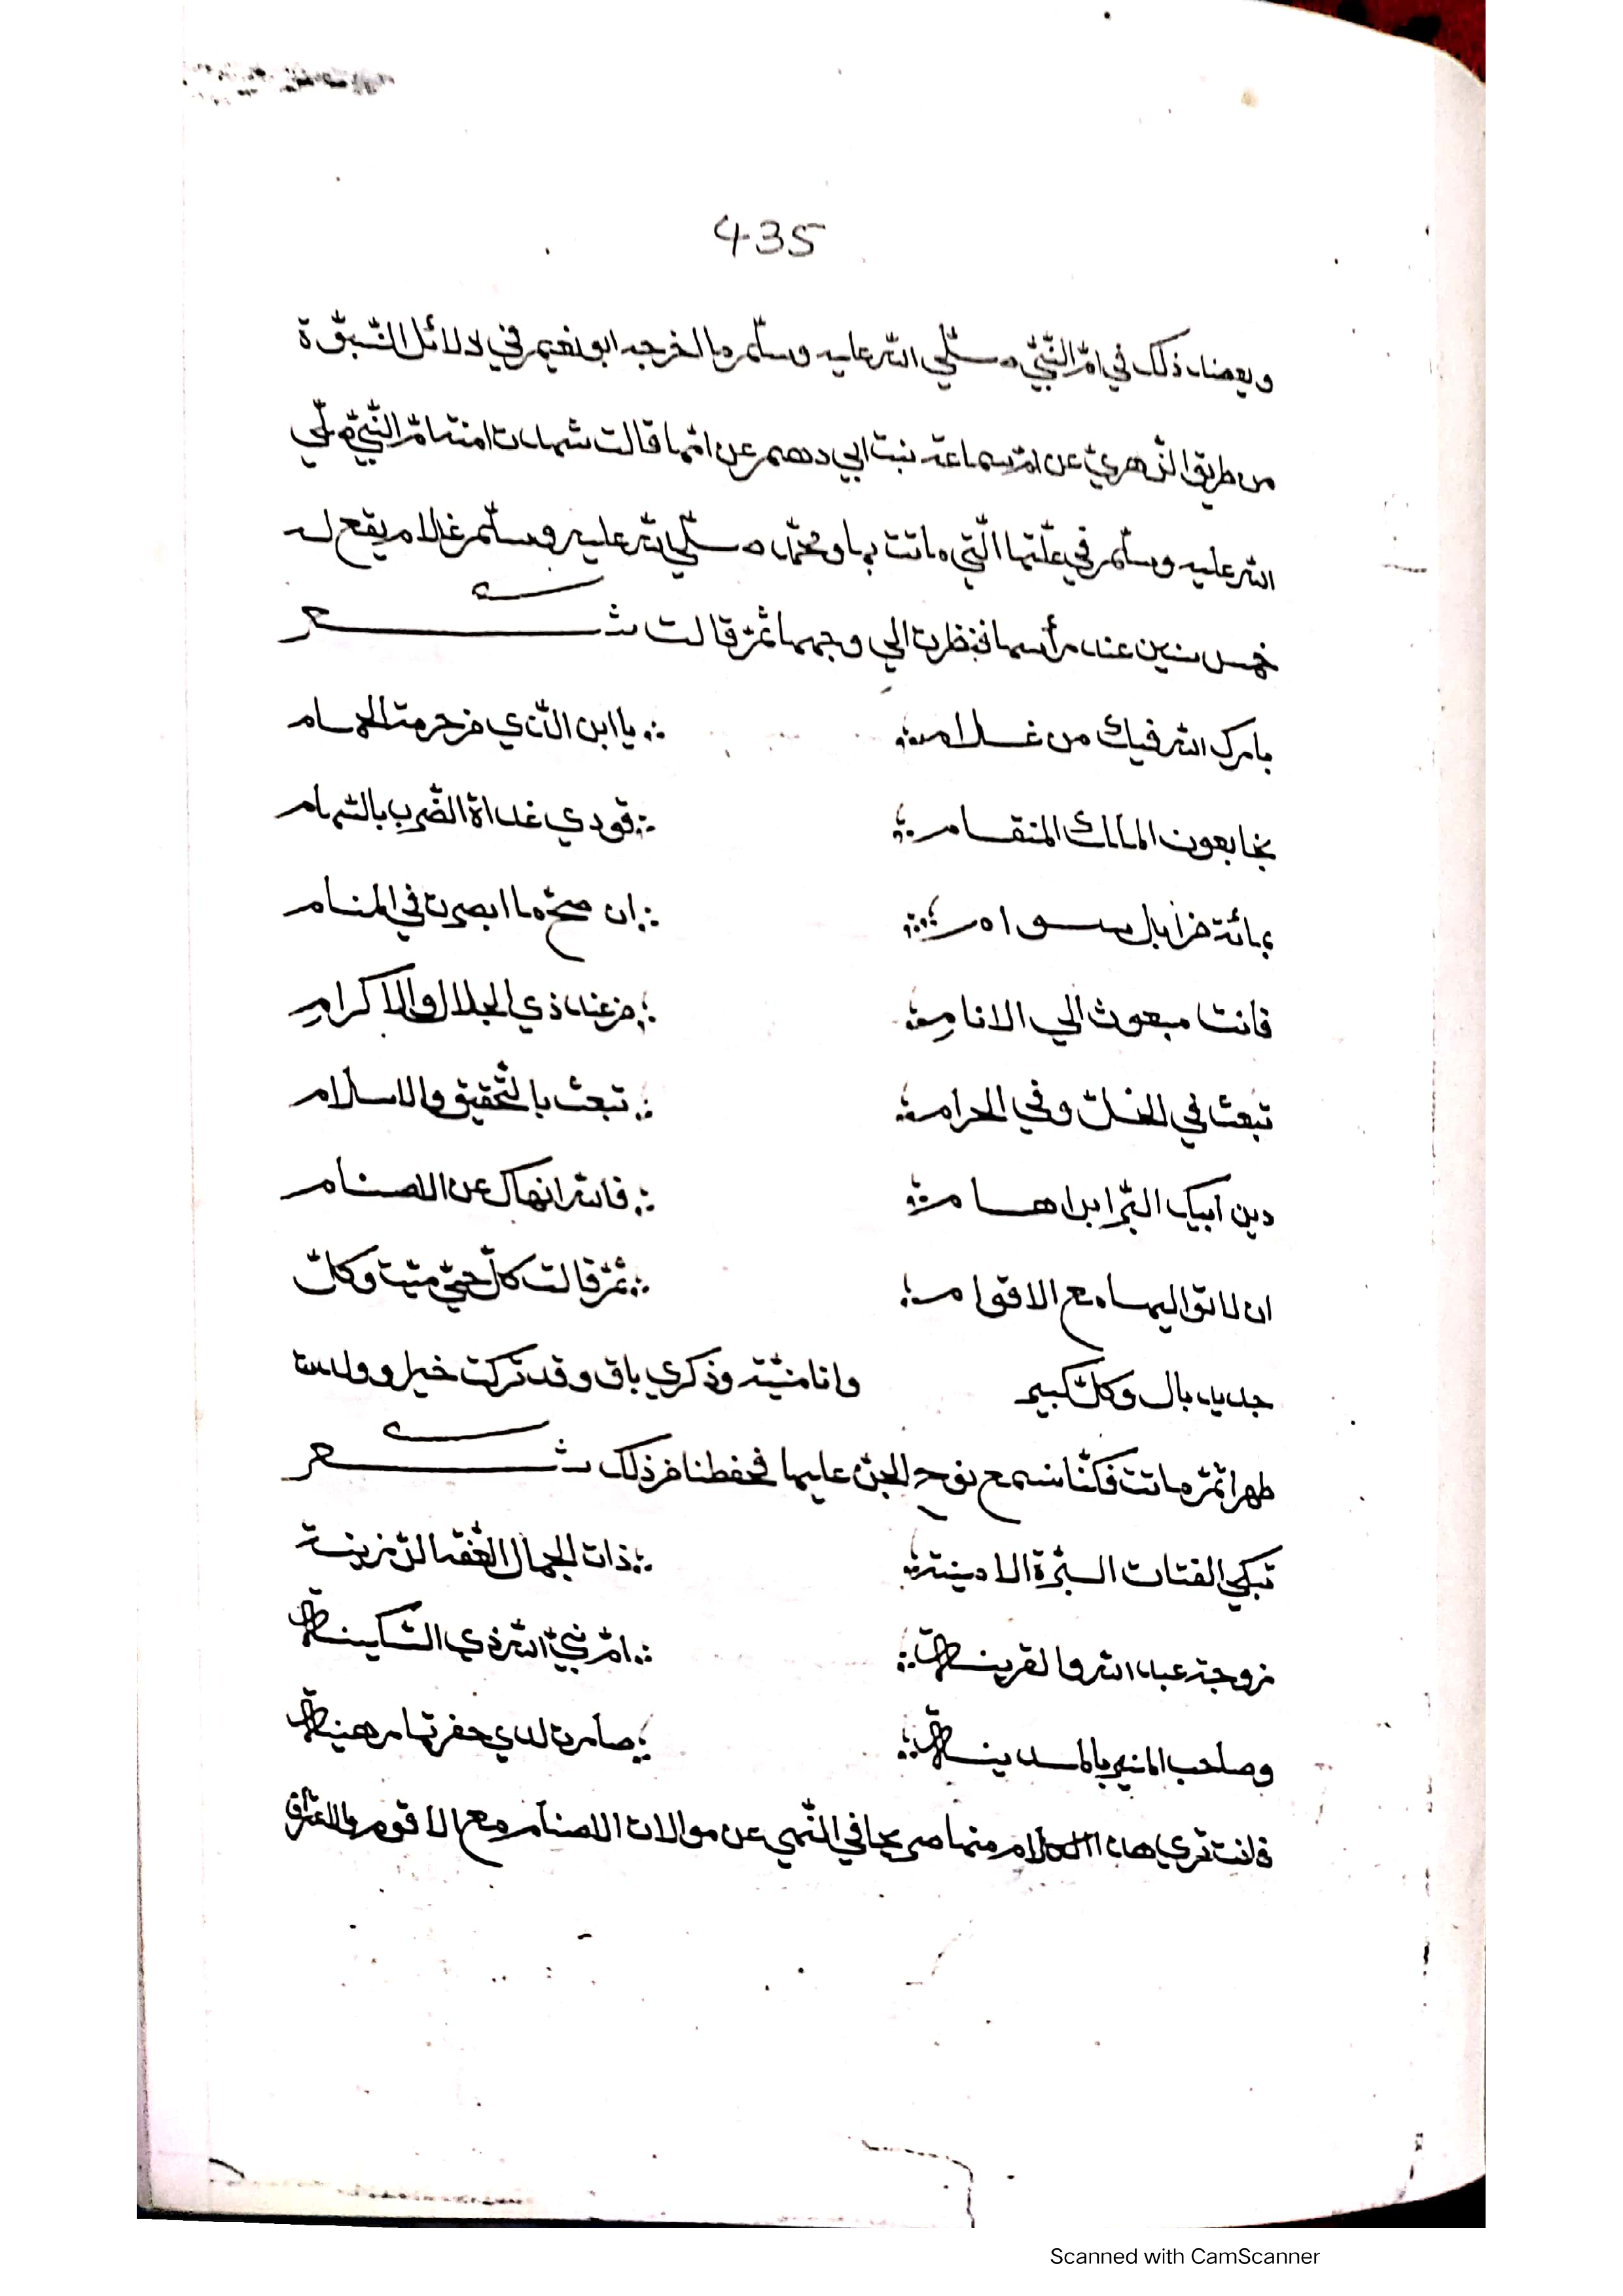 435
ويعضد ذلك في امّ النّبيّ صلّي الله عليه وسلّم ما اخرجه ابو نعيم في دلائل النّبوّة
من طريق الزّهريّ عن امّ سماعة بنت ابي دهم عن امّها قالت شهدت امنة امّ النّبيّ صلّي
الله عليه وسلّم في علّتها الّتي ماتت بها ومحمّد صلّي الله عليه وسلّم غلام يقع له
خمس سنين عند رأسها فنظرت الي وجهها ثمّ قالت شعر
بارك الله فيك من غلام ؞ يا ابن الّذي من حرمة الحمام
نجا بعون الملك المنقام ؞ قودي غداة الضّرب بالسّهام
بمائة من ابل سوام ؞ ان صحّ ما ابصرت في المنام
فانت مبعوث الي الانام ؞ من عند ذي الجلال والاكرام
تبعث في الحلّ وفي الحرام ؞ تبعث بالتّحقيق والاسلام
دين ابيك البرّ ابراهام ؞ فالله انهاك عن الاصنام
ان لا تواليها مع الاقوام ؞ ثمّ قالت كلّ حيّ ميّت وكلّ
جديد بال وكلّ كبير وانا ميّتة وذكري باق وقد تركت خيرا وولدت
طهرا ثمّ ماتت فكنّا نسمع نوح الجنّ عليها فحفظنا من ذلك شعر
تبكي الفتات البرّة الامينة ؞ ذات الجمال العفّة الرّزينة
زوجة عبد الله والقرينة ؞ امّ نبيّ الله ذي السّكينة
وصاحب المنبر بالمدينة ؞ صارت لدي حفرتها رهينة
فانت تري هذا الكلام منها صريحا في النّهي عن موالات الاصنام مع الاقوم والاعتراف
Scanned with CamScanner